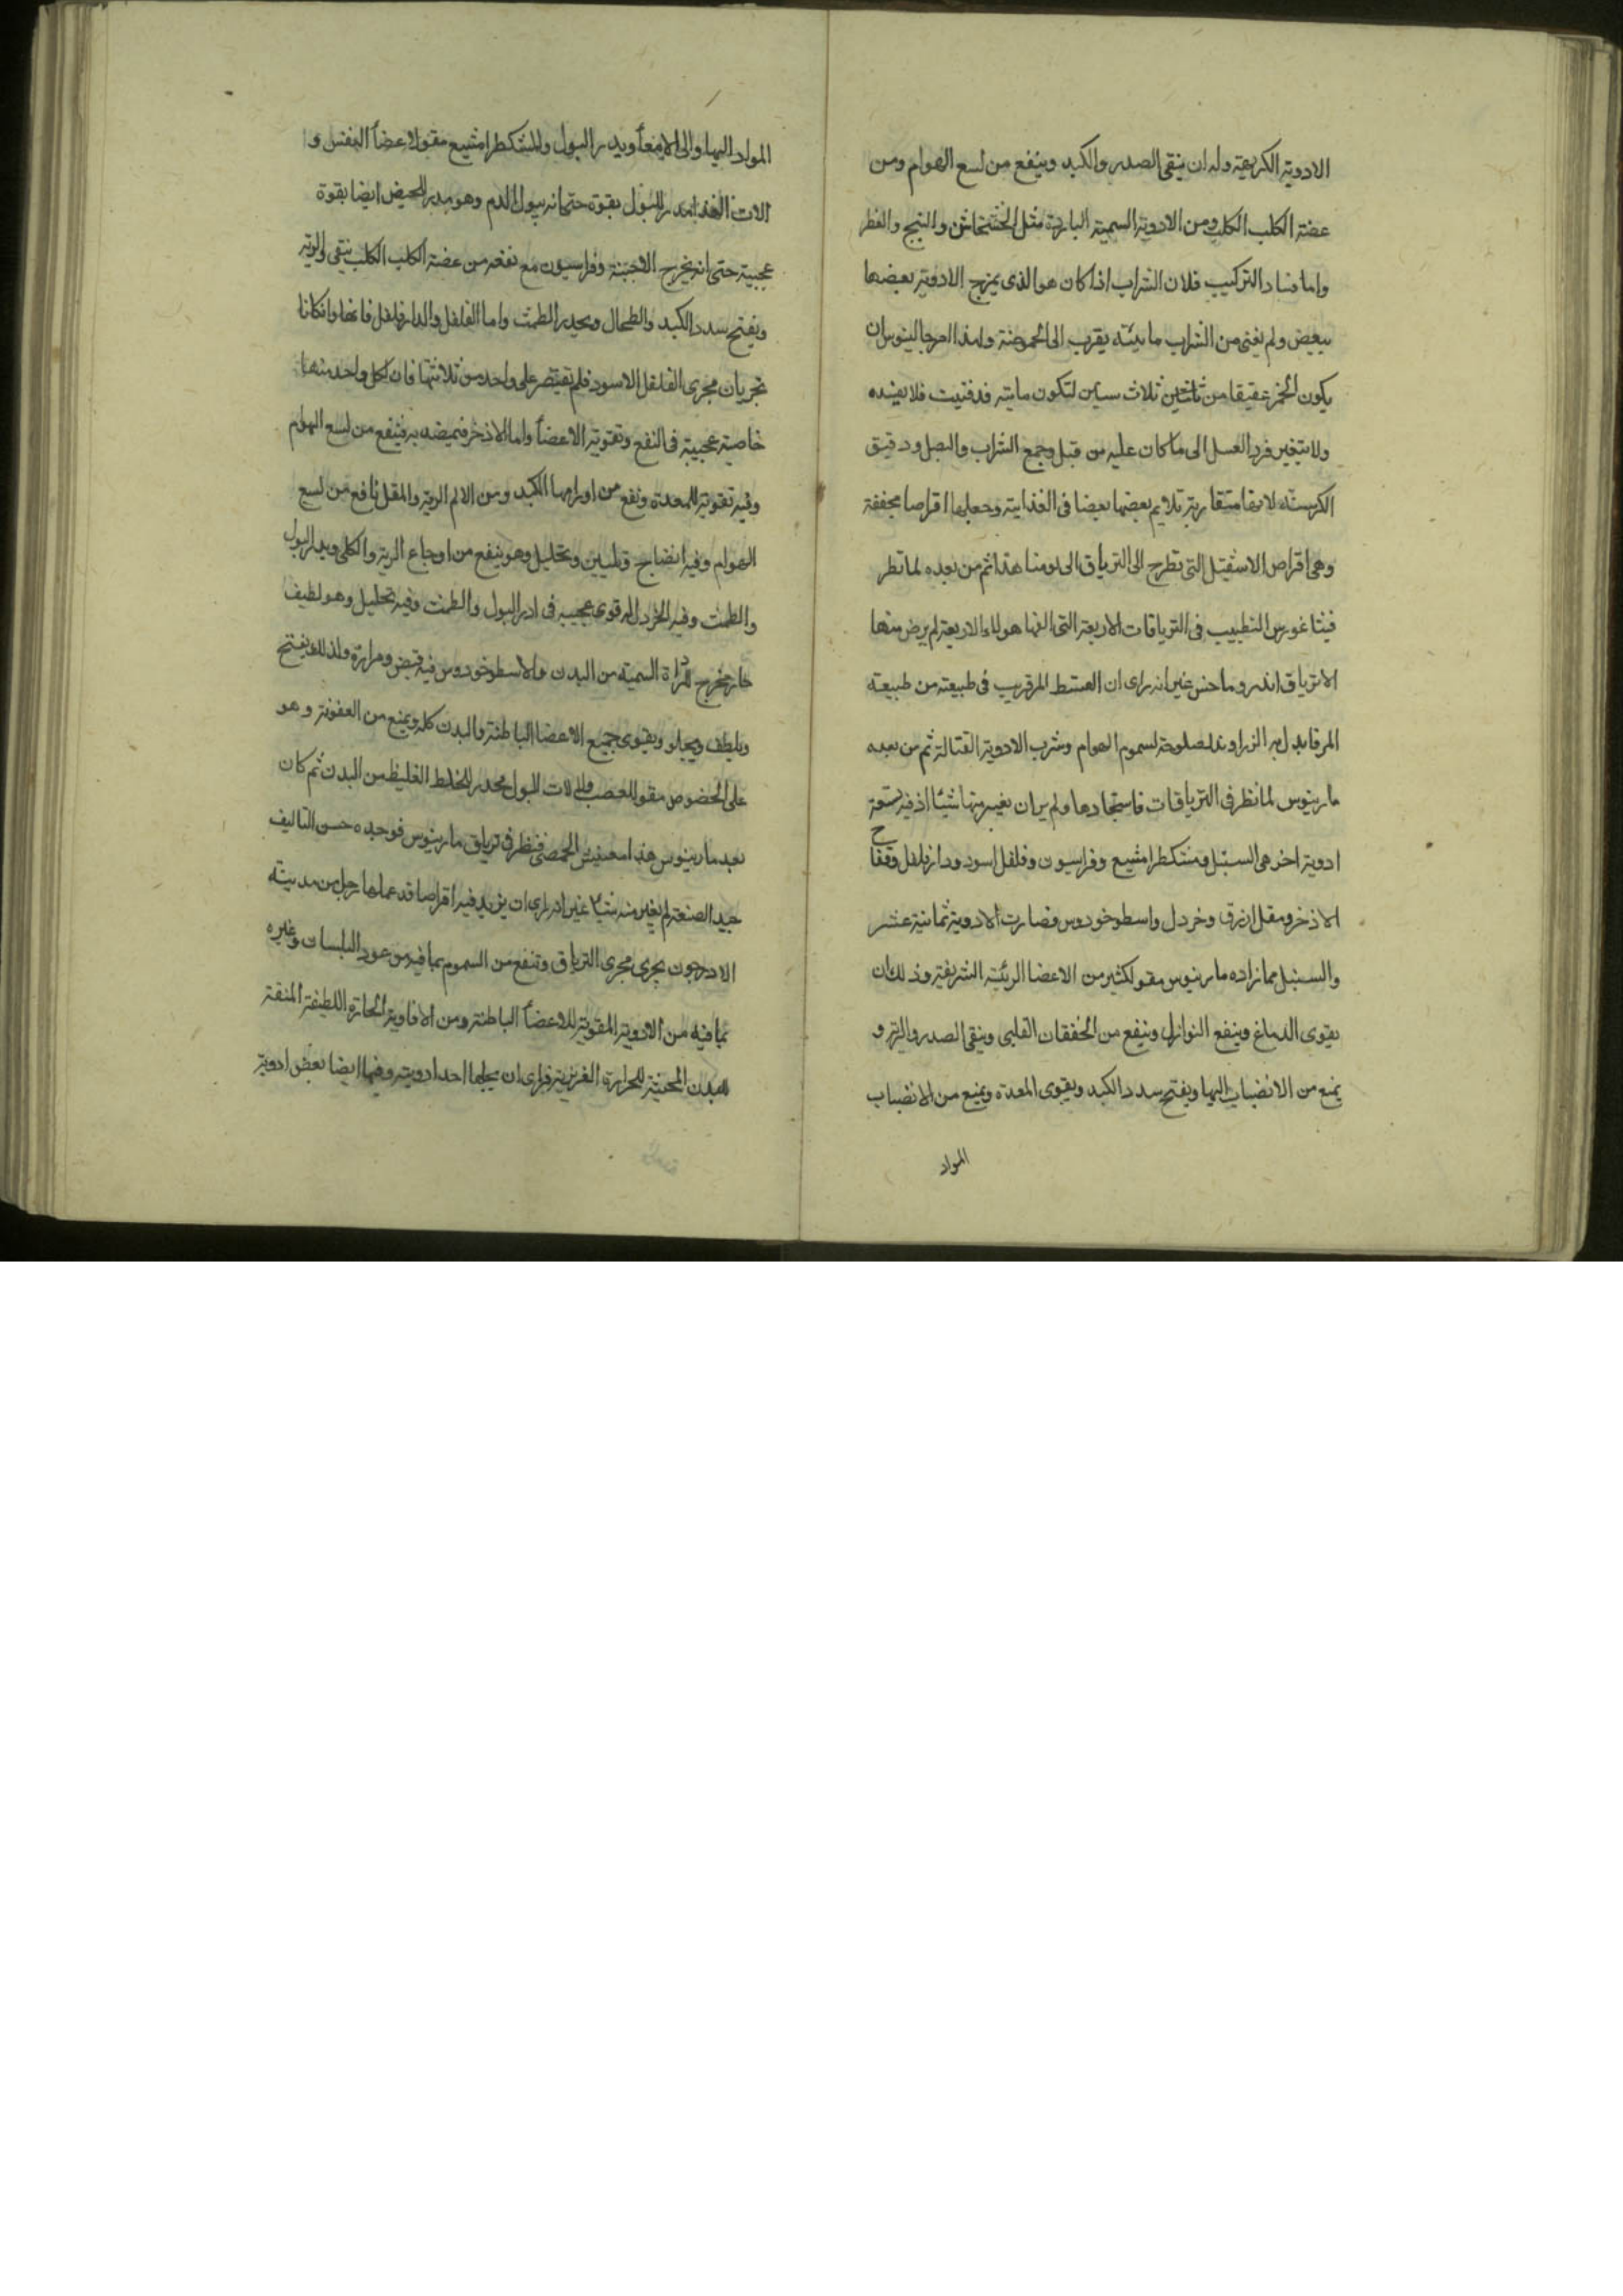 الادوية الكريهة وله ان ينقى الصدر والكبد وينفع من لسع الهوام ومن
عضة الكلب الكلب ومن الادوية السمية الباردة مثل الخشخاش والبنج والفطر
واما فساد التركيب فلان الشراب اذا كان هو الذى يمزج الادوية بعضها
ببعض ولم يفنى من الشراب مائيته يقرب الى الحموضة ولهذا امر جالينوس ان
يكون الخمر عتيقا من ثلاث سنين لتكون مايته قد فنيت فلا يفسده
ولا يتغير فرد العسل الى ما كان عليه من قبل وجمع الشراب والبصل ودقيق
الكرسنه متقاربة تلايم بعضها بعضا فى الغذاية وجعلها اقراصا مجففة
وهى اقراص الاشقيل التى تطرح الى الترياق الى يومنا هذا ثم من بعده لما نظر
فيثاغورس الطبيب فى الترياقات الاربعة التى الفها هولاء الاربعة لم يرض منها
الا ترياق اندروماخس غير انه راى ان القسط المر قريب فى طبيعته من طبيعة
المر فابدل به الزراوند لسموم الهوام وشرب الادوية القتالة ثم من بعده
مارينوس لما نظر فى الترياقات فاستجادها ولم ير ان يغير منها شيئا اذ فيه تسعة
ادوية اخر هى السنبل ومشكطرامشيع وفراسيون وفلفل اسود ودارفلفل وفقاح
الاذخر ومقل ازرق وخردل واسطوخودوس فصارت الادوية ثمانية عشر
والسنبل مما زاده مارينوس مقو لكثير من الاعضا الرئيسة الشريفة وذلك ان
يقوى الدماغ وينفع النوازل وينفع من الخفقان القلبى وينقى الصدر والرية و
يمنع من الانضباب اليها ويفتح سدد الكبد ويقوى المعدة ويمنع من الانضباب
المواد
المواد اليها والى الامعاء ويدر البول والمشكطرامشيع مقو لاعضا النفس و
الات الغذا يدر البول بقوة حتى انه يبول الدم وهو يدر الحيض ايضا بقوة
عجيبة حتى انه يخرج الاجنة وفراسيون مع نفعه من عضة الكلب الكلب ينقى الرية
ويفتح سدد الكبد والطحال ويحدر الطمث واما الفلفل والدارفلفل فانهما وان كانا
تجريان مجرى الفلفل الاسود فلم يقتصر على واحد من ثلاثتها فان لكل واحد منها
خاصية عجيبة فى النفع وتقوية الاعضاء واما الاذخر فينفع من لسع الهوام
وفيه تقوية للمعدة ونفع من اورامها الكبد ومن الالم الرية والمقل نافع من لسع
الهوام وفيه انضاج وتليين وتحليل وهو ينفع من اوجاع الرية والكلى ويدر البول
والطمث وفيه الخردل له قوى عجيبه فى ادرار البول والطمث وفيه تحليل وهو لطيف
حار يخرج المراة السمية من البدن والاسطوخودوس فيه قبض ومرارة ولذلك يفتح
ويلطف ويجلو ويقوى جميع الاعضا الباطنة والبدن كله ويمنع من العفونة وهو
على الخصوص مقو للعصب والات البول محدر للخلط الغليظ من البدن ثم كان
بعد مارينوس هذا الحمصى فنظر فى ترياق مارينوس فوجده حسن التاليف
جيد الصنعة لم يغير منه شيئا غير انه راى ان يزيد فيه اقراصا قد عملها رجل من مدينة
تجرى مجرى الترياق وتنفع من السموم بما فيه من عود البلسان وغيره
بما فيه من الادوية المقوية للاعضاء الباطنة ومن الافاوية الحارة اللطيفة المنقية
للبدن للحرارة الغريزية فراى ان يجعلها احد ادويته وفيها ايضا بعض ادوية